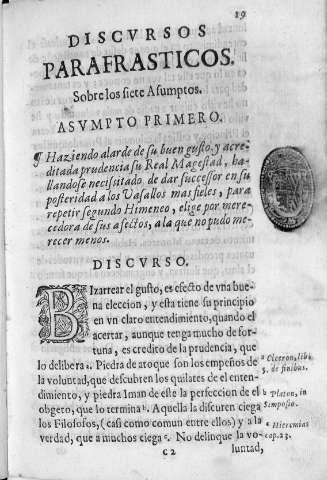 19
DISCVRSOS
PARAFRASTICOS.
Sobre los siete Asumptos.
ASVMPTO PRIMERO.
¶ Haziendo alarde de su buen gusto, y acre-
ditada prudencia su Real Magestad, ha-
llandose necissitado, de dar successor en su
posteridad a los Vasallos mas fieles, para
repetir segundo Himeneo, elige por mere-
cedora de sus afectos, a la que no pudo me-
recer menos.
DISCVRSO.
BIzarrear el gusto, es efecto de vna bue-
na eleccion, y esta tiene su principio
en vn claro entendimiento, quando el
acertar, aunque tenga mucho de for-
tuna, es credito de la prudencia, que
lo delibera a. Piedra de atoque son los empeños de
la voluntad, que descubren los quilates de el enten-
dimiento, y piedra Iman de este la perfeccion de el
obgeto, que lo termina b. Aquella la discuren ciega
los Filosofos, (casi como comun entre ellos) y a la
verdad, que a muchos ciega c. No delinque la vo-
C2
luntad,
a Ciceron, libi
5. de finibus.
b Platon, in
Simposio.
c Hieremias
cap. 23.